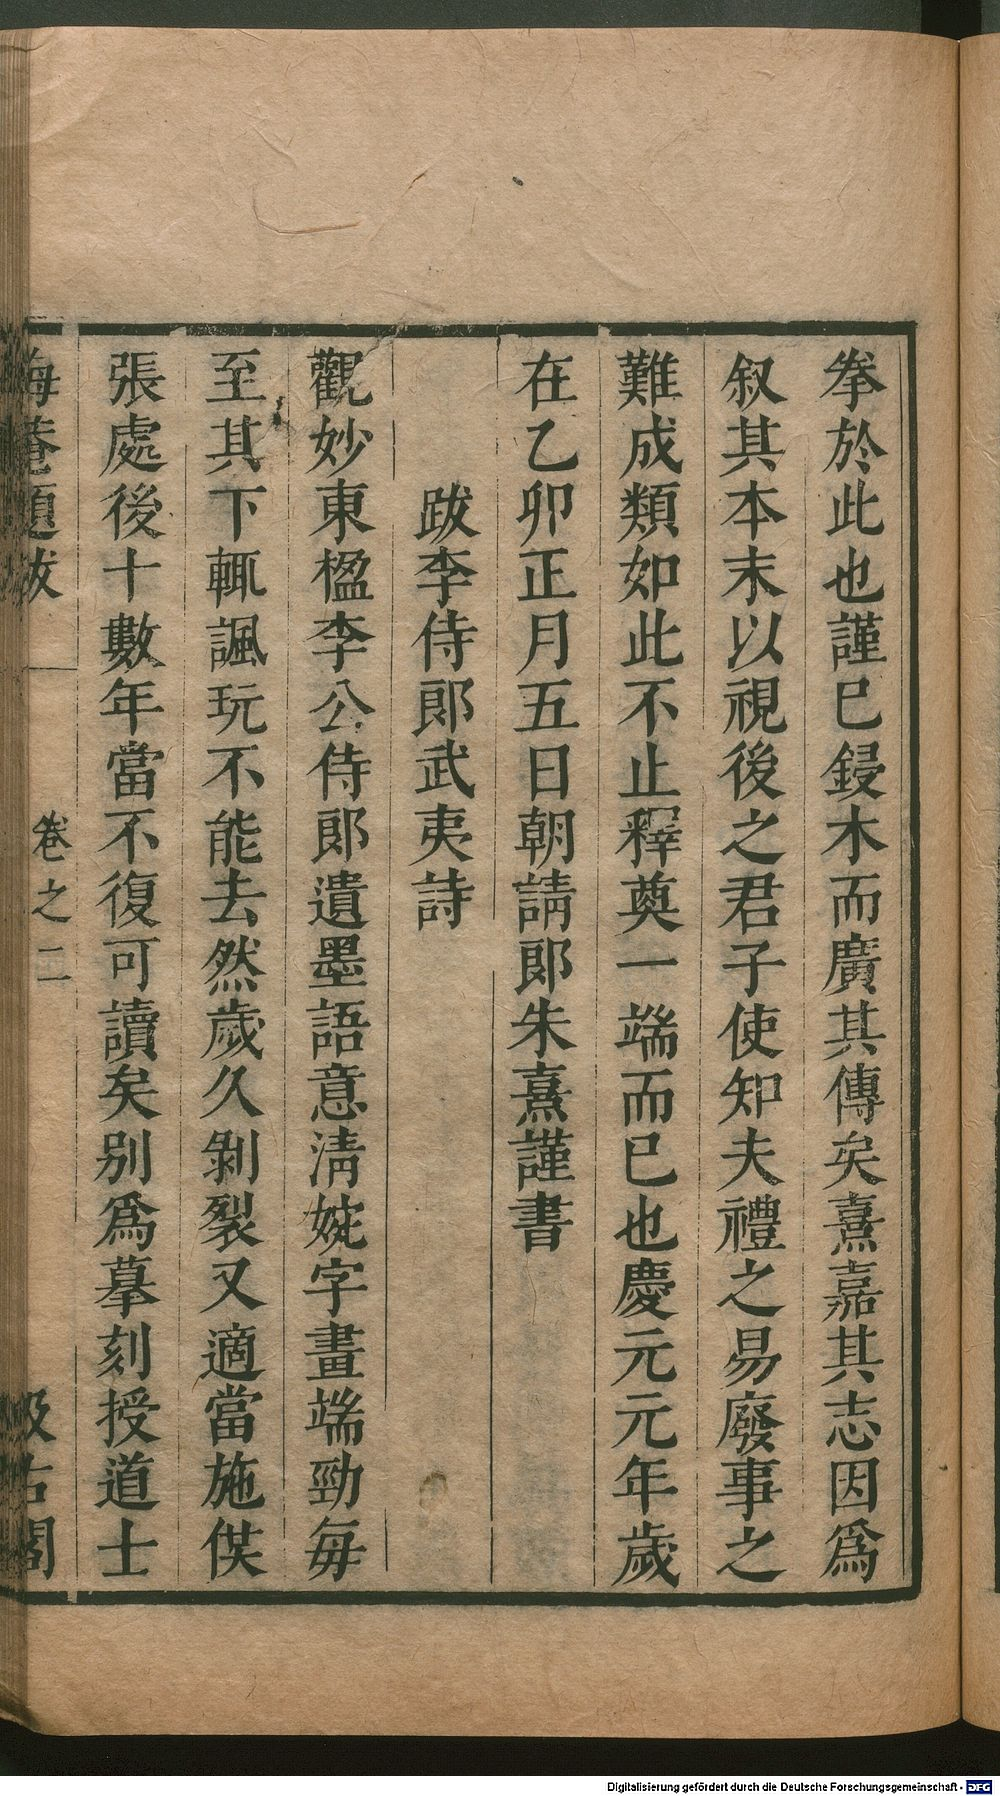 拳於此也謹已鋟木而廣其傳矣熹嘉其志因爲
叙其本末以視後之君子使知夫禮之易廢事之
難成類如此不止釋奠一端而已也慶元元年歲
在乙卯正月五日朝請郎朱熹謹書
跋李侍郎武夷詩
觀妙東楹李公侍郎遺墨語意淸婉字畫端勁每
至其下輒諷玩不能去然歲久剝裂又適當施供
張處後十數年當不復可讀矣别爲摹刻授道士
晦菴題跋
卷之二
汲古閣
Digitalisierung gefördert durch die Deutsche Forschungsgemeinschaft - DFG